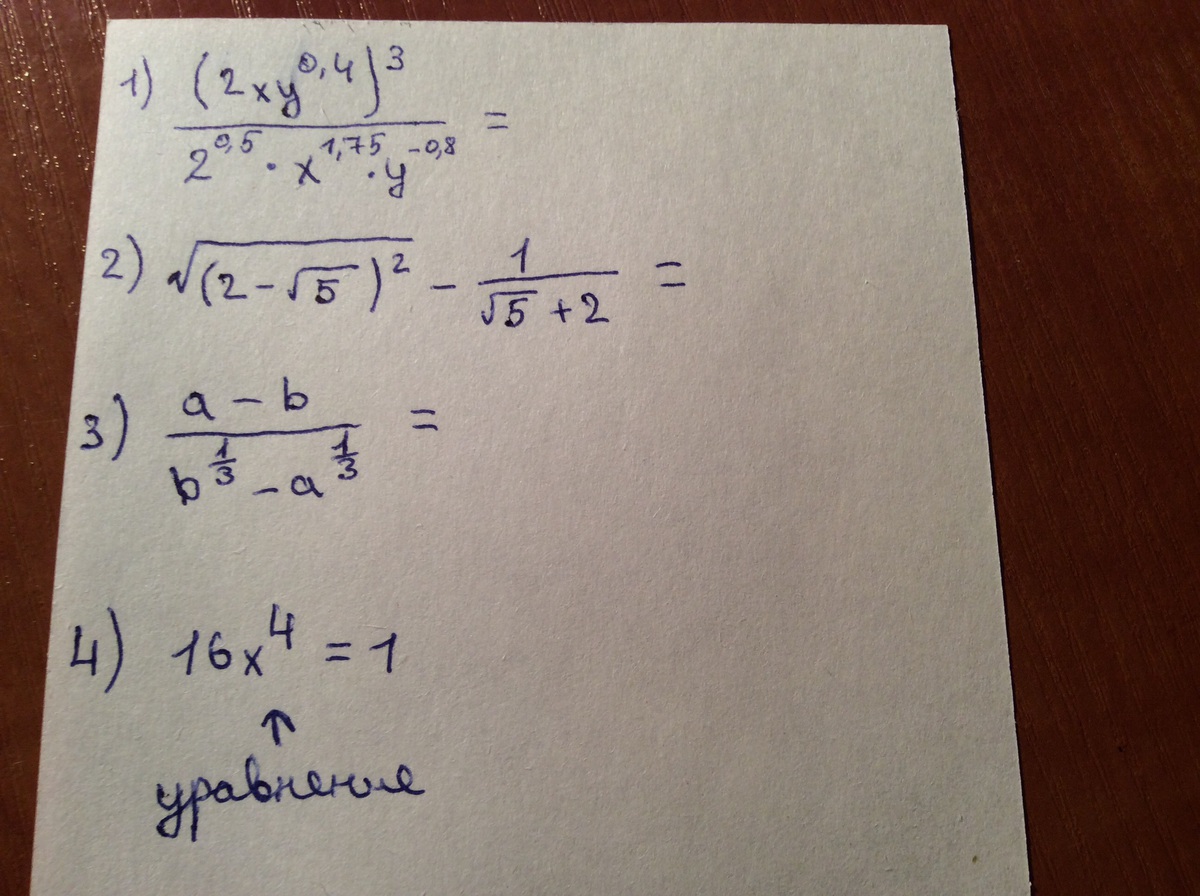 1) (2xy^0,4)^3 / 2^0,5 · x^1,75 · y^-0,8 =
2) √(2-√5)^2 - 1 / √5+2 =
3) a-b / b^1/3 - a^1/3 =
4) 16x^4 = 1
↑
уравнение